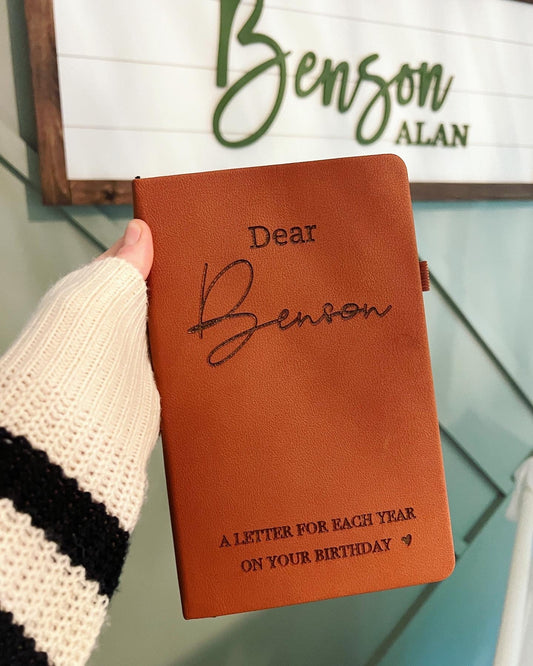 Benson
ALAN
Dear
Benson
A LETTER FOR EACH YEAR
ON YOUR BIRTHDAY